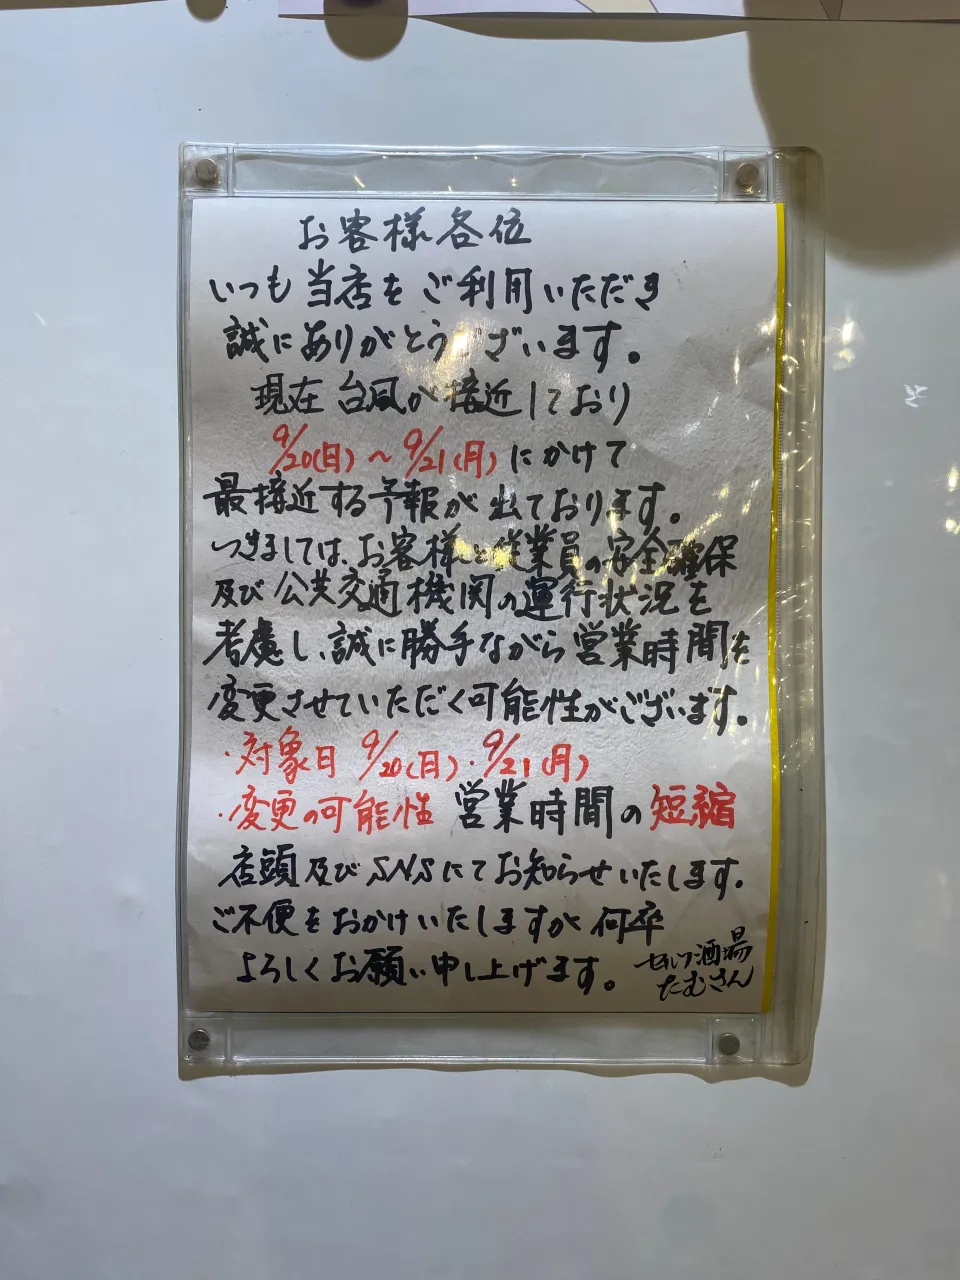 お客様各位
いつも当店をご利用いただき
誠にありがとうございます。
現在台風が接近しており
9/20(日)～9/21(月)にかけて
最接近する予報が出ております。
つきましては、お客様と従業員の安全確保
及び公共交通機関の運行状況を
考慮し、誠に勝手ながら営業時間を
変更させていただく可能性がございます。
・対象日 9/20(日)・9/21(月)
・変更の可能性 営業時間の短縮
店頭及びSNSにてお知らせいたします。
ご不便をおかけいたしますが何卒
よろしくお願い申し上げます。
セルフ酒場
たむさん